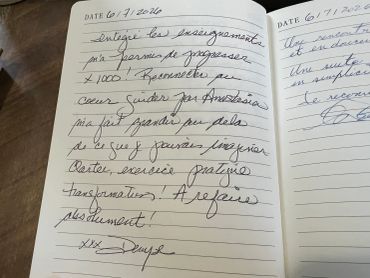 DATE 6/7/2026
intégré les enseignements
m'a permis de progresser
x 1000! Reconnecter au
coeur guider par Anastasia
m'a fait grandir au delà
de ce que je pouvais imaginer
Cartes, exercice pratique
transformateurs! A refaire
absolument!
xxx
DATE 6/7/2026
Une rencontre
et en douceur
Une suite
en simplici
Se reconn